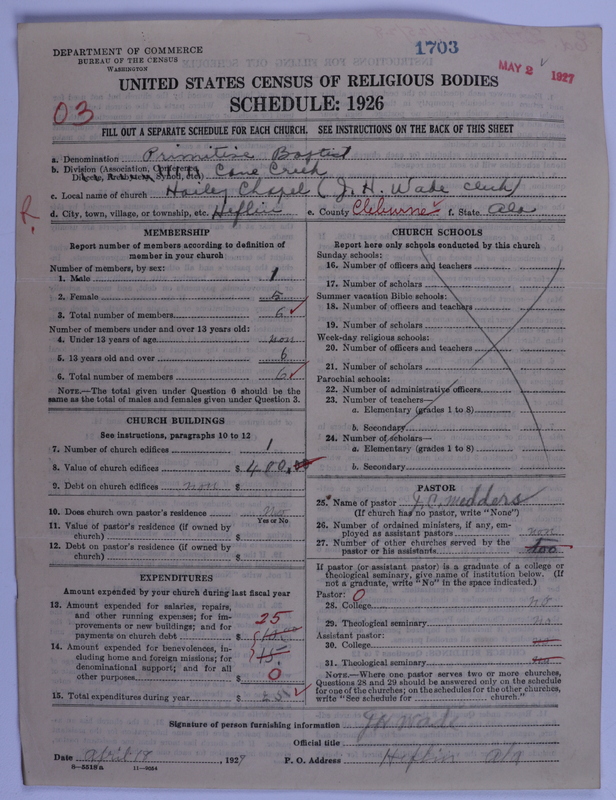 DEPARTMENT OF COMMERCE
BUREAU OF THE CENSUS
WASHINGTON
1703
MAY 2 1927
UNITED STATES CENSUS OF RELIGIOUS BODIES
SCHEDULE: 1926
03
FILL OUT A SEPARATE SCHEDULE FOR EACH CHURCH. SEE INSTRUCTIONS ON THE BACK OF THIS SHEET
a. Denomination Primitive Baptist
b. Division (Association, Conference, Diocese, Presbytery, Synod, etc.) Cane Creek
c. Local name of church Hailey Chapel (J. H. Wade clerk)
R.
d. City, town, village, or township, etc. Heflin e. County Cleburne f. State Ala
MEMBERSHIP
Report number of members according to definition of
member in your church
Number of members, by sex:
1. Male 1
2. Female 5
3. Total number of members 6
Number of members under and over 13 years old:
4. Under 13 years of age non
5. 13 years old and over 6
6. Total number of members 6
NOTE.—The total given under Question 6 should be
same as the total of males and females given under Question 3.
CHURCH BUILDINGS
See instructions, paragraphs 10 to 12
7. Number of church edifices 1
8. Value of church edifices $ 400.00
9. Debt on church edifices non $
10. Does church own pastor's residence
Yes or No
11. Value of pastor's residence (if owned by
church) $
12. Debt on pastor's residence (if owned by
church) $
EXPENDITURES
Amount expended by your church during last fiscal year
13. Amount expended for salaries, repairs,
and other running expenses; for im-
provements or new buildings; and for
payments on church debt $ 25
14. Amount expended for benevolences, in-
cluding home and foreign missions; for
denominational support; and for all
other purposes $ 15. 0
15. Total expenditures during year $ 25
CHURCH SCHOOLS
Report here only schools conducted by this church
Sunday schools:
16. Number of officers and teachers
17. Number of scholars
Summer vacation Bible schools:
18. Number of officers and teachers
19. Number of scholars
Week-day religious schools:
20. Number of officers and teachers
21. Number of scholars
Parochial schools:
22. Number of administrative officers
23. Number of teachers—
a. Elementary (grades 1 to 8)
b. Secondary
24. Number of scholars—
a. Elementary (grades 1 to 8)
b. Secondary
PASTOR
25. Name of pastor J. C. Medders
(If church has no pastor, write "None")
26. Number of ordained ministers, if any, em-
ployed as assistant pastors non
27. Number of other churches served by the
pastor or his assistants
If pastor (or assistant pastor) is a graduate of a college or
theological seminary, give name of institution below. (If
not a graduate, write "No" in the space indicated.)
Pastor: 0
28. College no
29. Theological seminary no
Assistant pastor:
30. College no
31. Theological seminary no
NOTE.—Where one pastor serves two or more churches,
Questions 28 and 29 should be answered only on the schedule
for one of the churches; on the schedules for the other churches,
write "See schedule for church."
Signature of person furnishing information J H Wade
Official title
Date April 17, 1927 P. O. Address Heflin Ala
8-5518a 11-9054